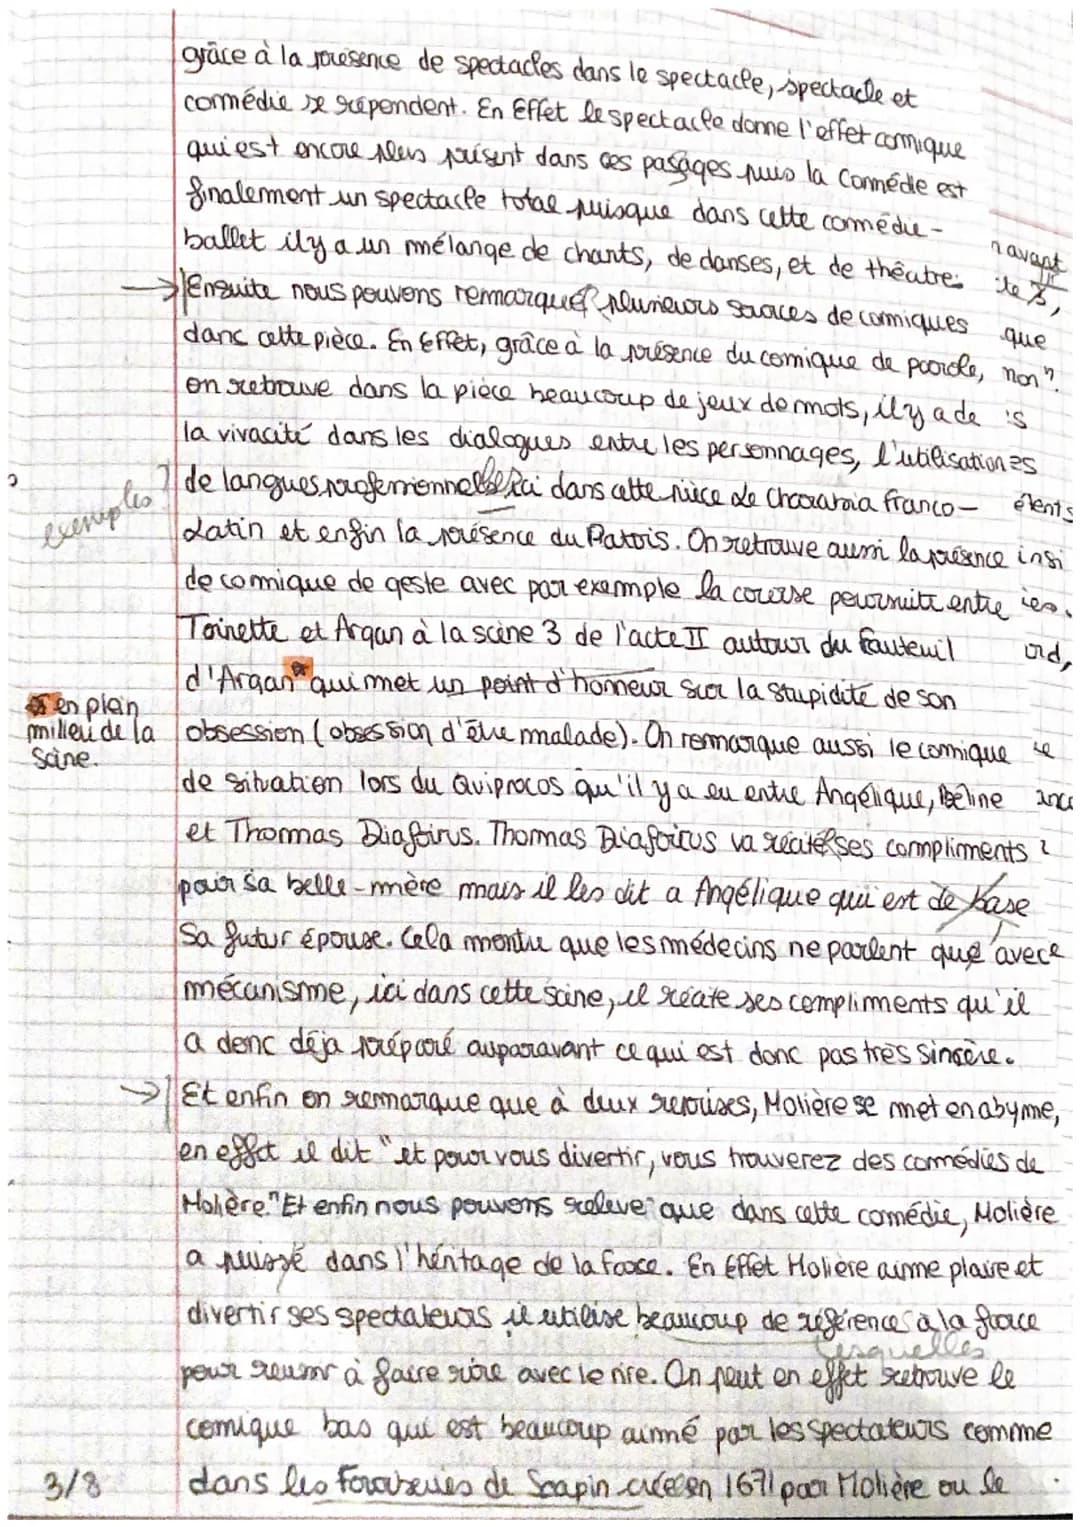 grâce à la présence de spectacles dans le spectacle, spectacle et
comédie se répondent. En Effet le spectacle donne l'effet comique
qui est encore plus présent dans ces passages puis la Comédie est
finalement un spectacle total puisque dans cette comédie-
ballet il y a un mélange de chants, de danses, et de théâtre.
n avant
ite
→ Ensuite nous pouvons remarquer plusieurs sources de comiques
que
dans cette pièce. En Effet, grâce à la présence du comique de parole,
non".
on retrouve dans la pièce beaucoup de jeux de mots, il y a de
is
la vivacité dans les dialogues entre les personnages, l'utilisation
es
exemples?
de langues professionnelles ici dans cette pièce Le Charabia franco-
élents
Latin et enfin la présence du Patois. On retrouve aussi la présence
insi
de comique de geste avec par exemple la course poursuite entre
ies.
Toinette et Argan à la scène 3 de l'acte II autour du fauteuil
ord,
d'Argan qui met un point d'honneur sur la stupidité de son
en plein
milieu de la
scène.
obsession (obsession d'être malade). On remarque aussi le comique
de situation lors du Quiprocos qu'il y a eu entre Angélique, Béline
et Thomas Diafoirus. Thomas Diafoirus va réciter ses compliments
pour sa belle-mère mais il les dit a Angélique qui est de base
Sa futur épouse. Cela montre que les médecins ne parlent que avec
mécanisme, ici dans cette scène, il récite ses compliments qu'il
a donc déja préparé auparavant ce qui est donc pas très sincère.
→ Et enfin on remarque que à deux reprises, Molière se met en abyme,
en effet il dit "et pour vous divertir, vous trouverez des comédies de
Molière." Et enfin nous pouvons relever que dans cette comédie, Molière
a puissé dans l'héritage de la farce. En Effet Molière aime plaire et
divertir ses spectateurs il utilise beaucoup de référence à la farce
lesquelles
pour reussir à faire rire avec le rire. On peut en effet retrouve le
comique bas qui est beaucoup aimé par les spectateurs comme
dans les Fourberies de Scapin créé en 1671 par Molière ou le
3/8